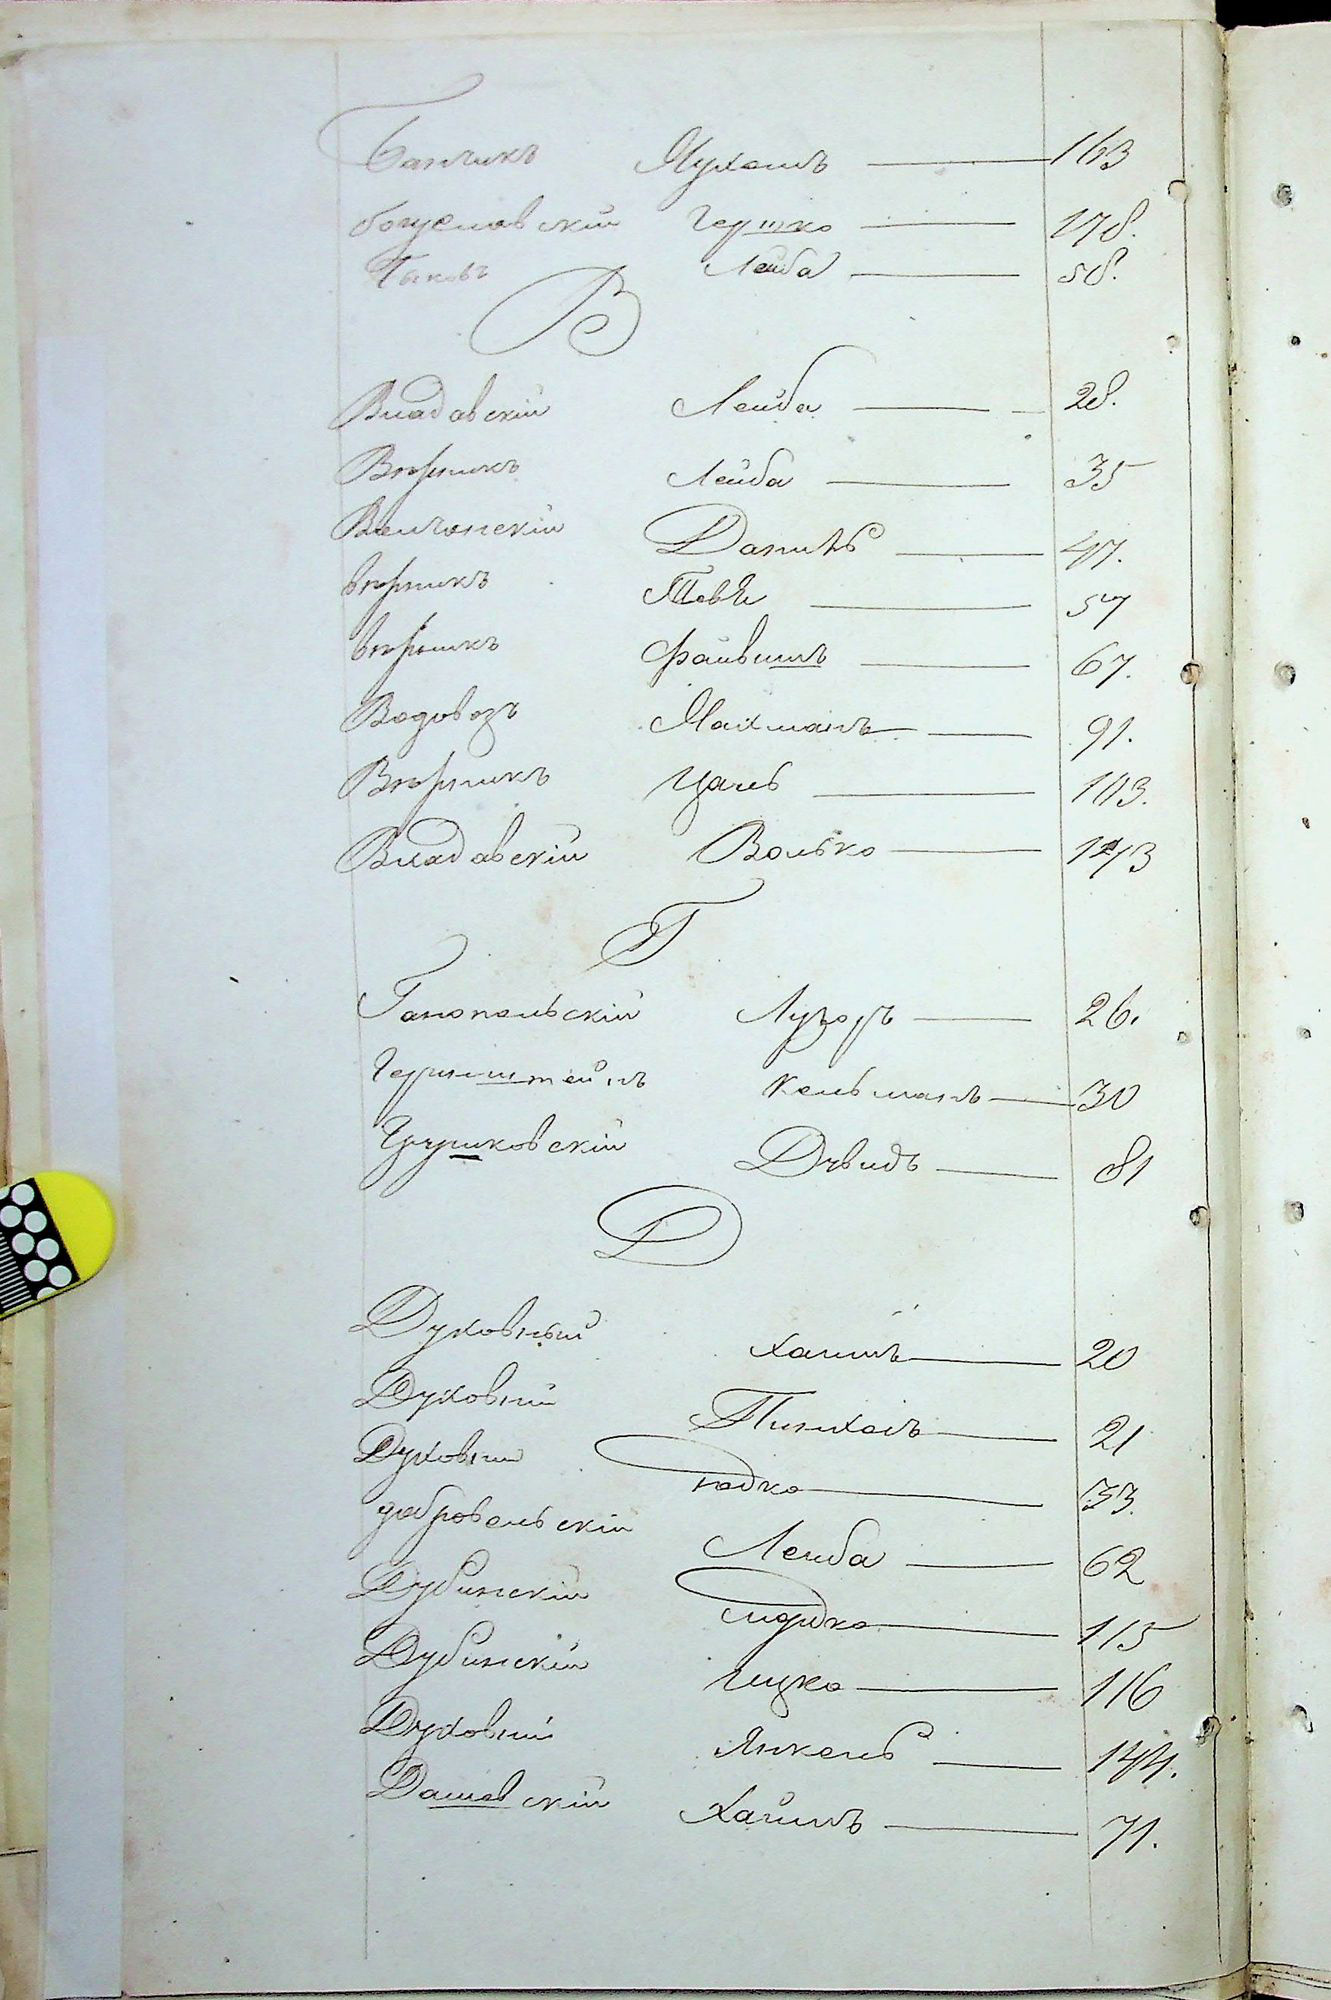 Банчикъ Нухемъ 163
Богуславскій Гершко 178.
Быковъ Лейба 58.
В
Владавскій Лейба 28.
Вортникъ Лейба 35
Велчанскій Даніѣль 47.
Вортникъ Тевье 57
Вортникъ Файвишъ 67.
Водовозъ Нахманъ 91.
Вортникъ Цаль 103.
Владавскій Волько 173
Г
Ганопольскій Лузоръ 26.
Геринштейнъ Кельманъ 30
Грушковскій Дувидъ 81
Д
Духовный Хаимъ 20
Духовный Пинхасъ 21
Духовный 33.
Добровольскій Лейба 62
Дубинскій 115
Дубинскій Ицко 116
Духовный Янкель 144.
Дашевскій Хаимъ 71.